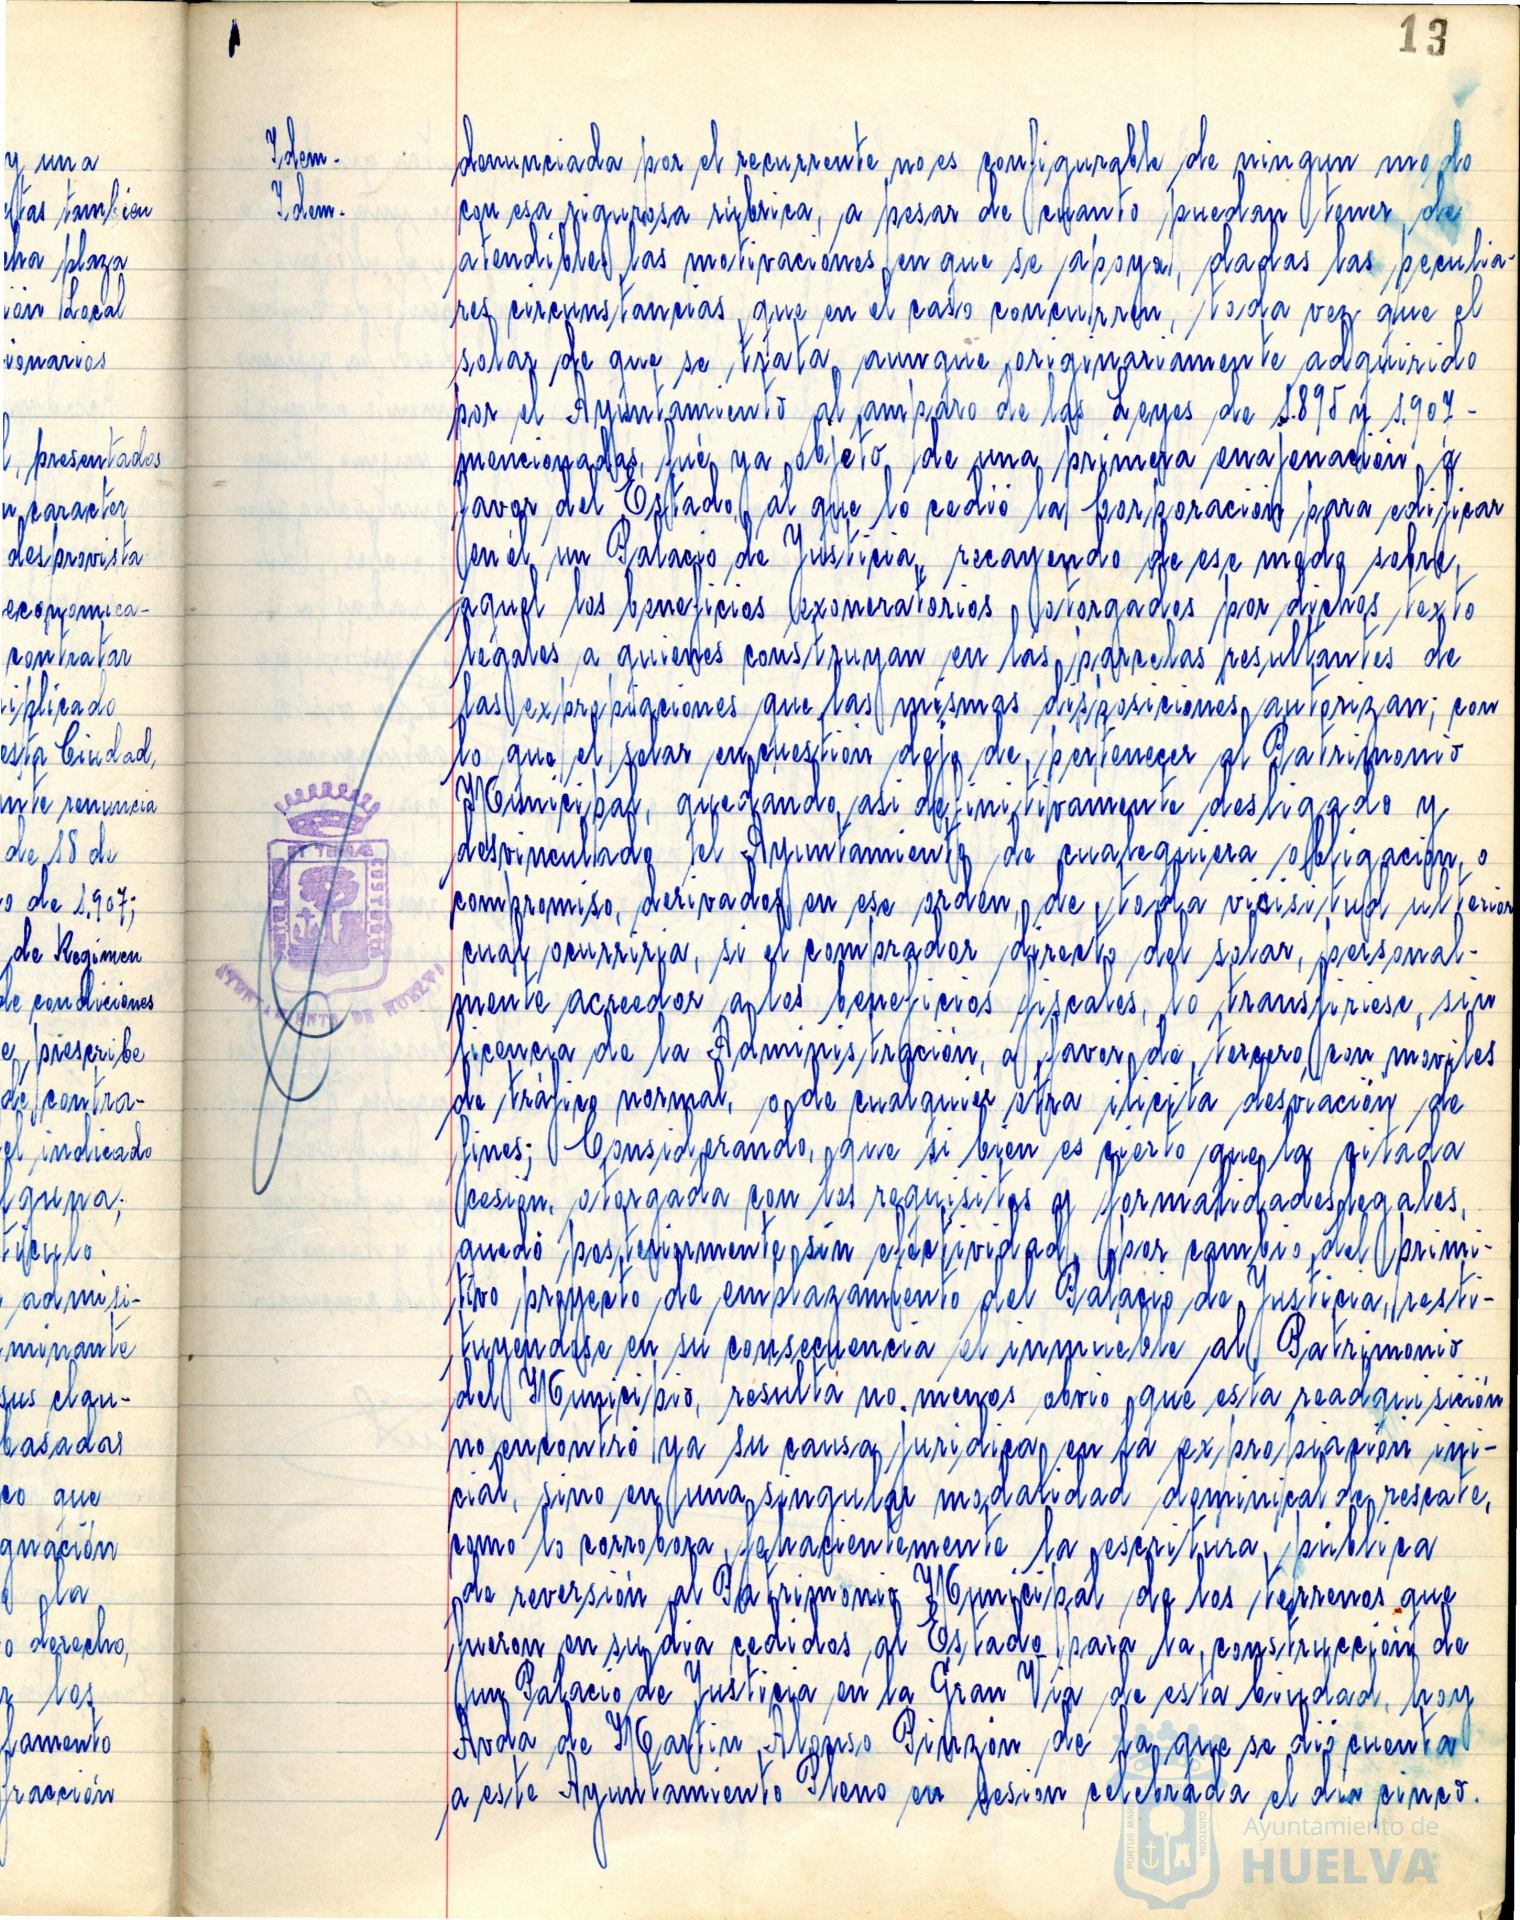 13
y una
estas tambien
cha plaza
ión Local
ionarios
presentados
n caracter
desprovista
economica-
contratar
iplicado
esta Ciudad,
nte renuncia
de 18 de
o de 1.907;
de Regimen
de condiciones
e prescribe
de contra-
el indicado
lguna;
tículo
admisi-
minante
sus clau-
basadas
co que
gnación
la
o derecho,
los
lamento
fracción
Idem.
Idem.
denunciada por el recurrente no es configurable de ningun modo
con esa rigurosa rúbrica, a pesar de cuanto puedan tener de
atendibles las motivaciones en que se apoya, dadas las peculia-
res circunstancias que en el caso concurren, toda vez que el
solar de que se trata aunque originariamente adquirido
por el Ayuntamiento al amparo de las Leyes de 1.895 y 1.907-
mencionadas, fué ya objeto de una primera enajenación a
favor del Estado, al que lo cedió la Corporación para edificar
en él un Palacio de Justicia, recayendo de ese modo sobre
aquel los beneficios exoneratorios otorgados por dichos texto
legales a quienes construyan en las parcelas resultantes de
las expropiaciones que las mismas disposiciones autorizan; con
lo que el solar en cuestión dejo de pertenecer al Patrimonio
Municipal, quedando asi definitivamente desligado y
desvinculado el Ayuntamiento de cualequiera obligación o
compromiso, derivados en ese orden, de toda vicisitud ulterior
cual ocurriria, si el comprador directo del solar, personal-
mente acreedor a los beneficios fiscales, lo transfiriese, sin
licencia de la Administración, a favor de tercero, con moviles
de tráfico normal, o de cualquier otra ilicita desviación de
fines; Considerando, que si bien es cierto que la citada
cesión, otorgada con los requisitos y formalidades legales,
quedó posteriormente sin efectividad, por cambio del primi-
tivo proyecto de emplazamiento del Palacio de Justicia, resti-
tuyendose en su consecuencia el inmueble al Patrimonio
del Municipio, resulta no menos obvio que esta readquisición
no encontró ya su causa juridica en la expropiación ini-
cial, sino en una singular modalidad dominical de rescate,
como lo corrobora fehacientemente la escritura pública
de reversión al Patrimonio Municipal de los terrenos que
fueron en su dia cedidos al Estado para la construcción de
un Palacio de Justicia en la Gran Via de esta Ciudad, hoy
Avda de Martin Alonso Pinzón de la que se dió cuenta
a este Ayuntamiento Pleno en sesión celebrada el dia cinco.
AYUNTAMIENTO DE HUELVA
PORTUS MARIS
CUSTODIA
Ayuntamiento de
HUELVA